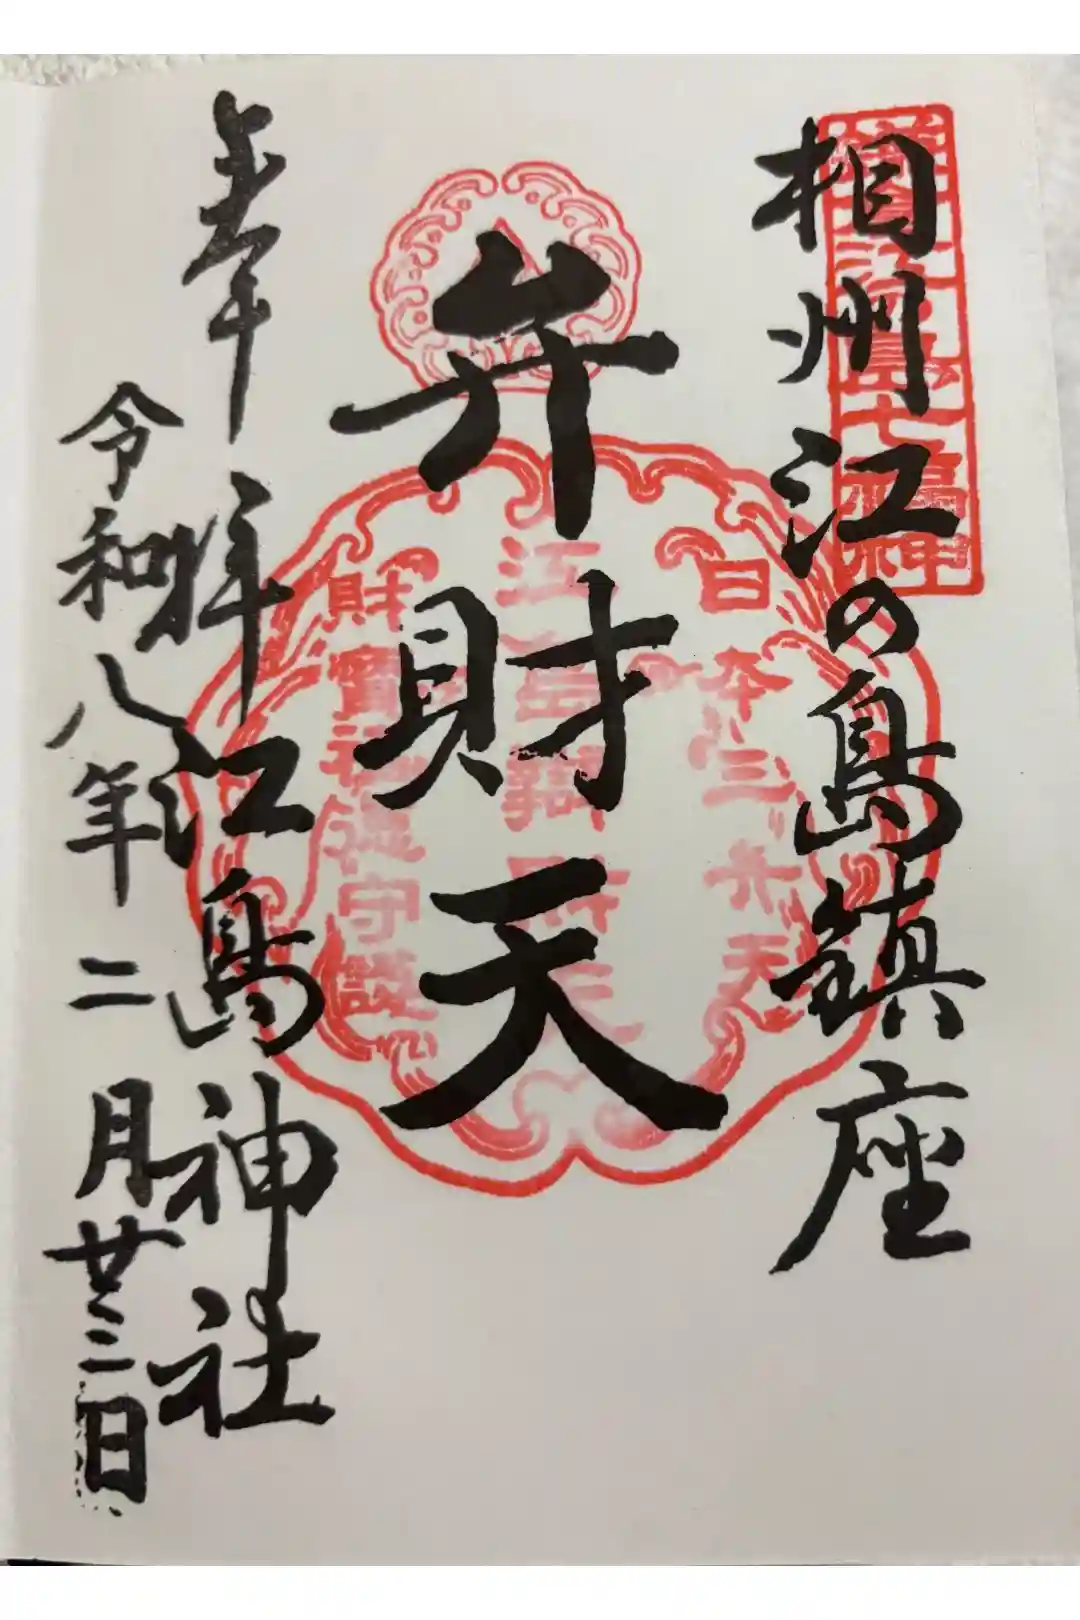 相州江の島鎮座
弁財天
奉拝江島神社
令和八年二月廿三日
鎌倉江の島七福神
日本三弁天
江島辯財天
財寶福徳守護